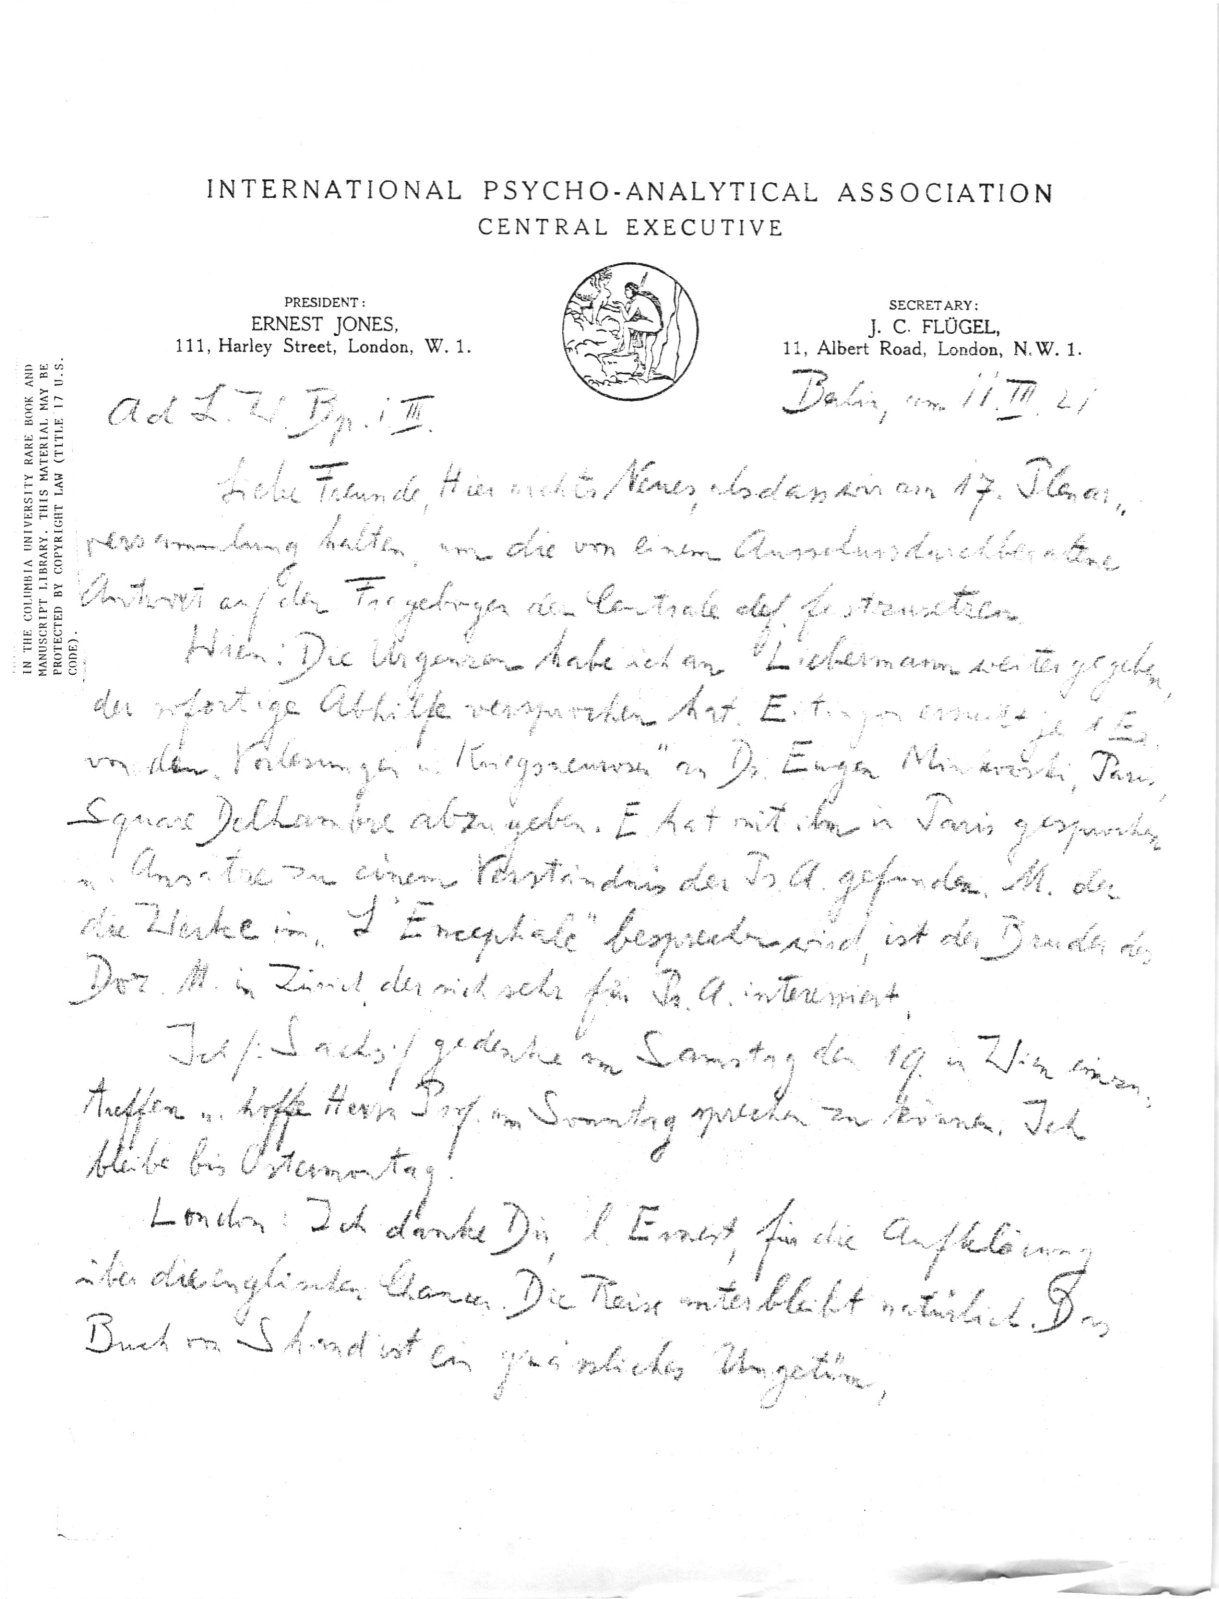 INTERNATIONAL PSYCHO-ANALYTICAL ASSOCIATION
CENTRAL EXECUTIVE
PRESIDENT:
ERNEST JONES,
111, Harley Street, London, W. 1.
SECRETARY:
J. C. FLÜGEL,
11, Albert Road, London, N.W. 1.
IN THE COLUMBIA UNIVERSITY RARE BOOK AND
MANUSCRIPT LIBRARY. THIS MATERIAL MAY BE
PROTECTED BY COPYRIGHT LAW (TITLE 17 U.S.
CODE).
Berlin, am 11. III. 21
Ad L. W. Bp. i III.
Liebe Freunde, Hier nichts Neues, als dass wir am 17. Plenar„
versammlung halten, um die von einem Ausschuss durchberatene
Antwort auf den Fragebogen der Centrale def. festzusetzen.
Wien: Die Urgenzen habe ich an Liebermann weitergegeben,
der sofortige Abhilfe versprochen hat. Eitingon ersucht je 1 Ex.
von den „Vorlesungen u. Kriegsneurosen" an Dr. Eugen Minkowski, Paris,
Square Delhambre abzugeben. E hat mit ihm in Paris gesprochen
u. Ansätze zu einem Verständnis der Ps. A. gefunden. M. der
die Werke im „L'Encephale" besprechen wird, ist der Bruder des
Doz. M. in Zürich, der sich sehr für Ps. A. interessiert.
Ich /: Sachs :/ gedenke am Samstag den 19. in Wien einzu„
treffen u. hoffe Herrn Prof. am Sonntag sprechen zu können. Ich
bleibe bis Ostermontag.
London: Ich danke Dir, l. Ernest, für die Aufklärung
über die englischen Chancen. Die Reise unterbleibt natürlich. Das
Buch von Shand ist ein grässliches Ungetüm,